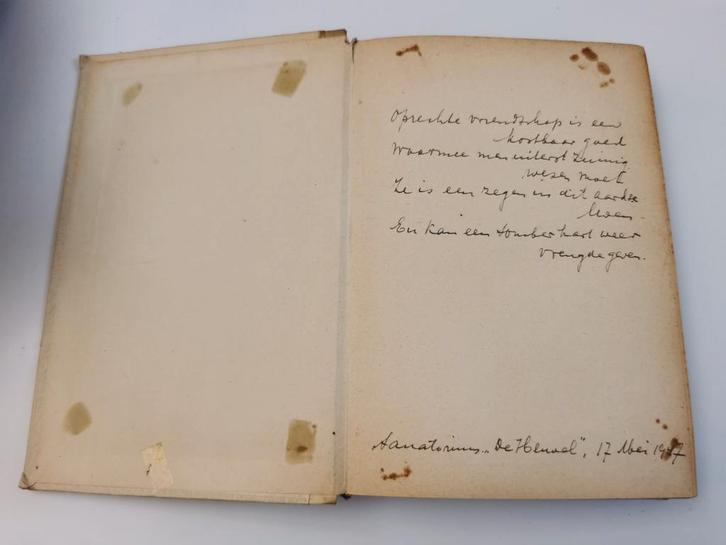 Oprechte vriendschap is een
kostbaar goed
Waarmee men uiterst zuinig
wezen moet
Ze is een zegen in dit aardse
leven.
En kan een somber hart weer
vreugde geven.
Sanatorium „De Heuvel”, 17 Mei